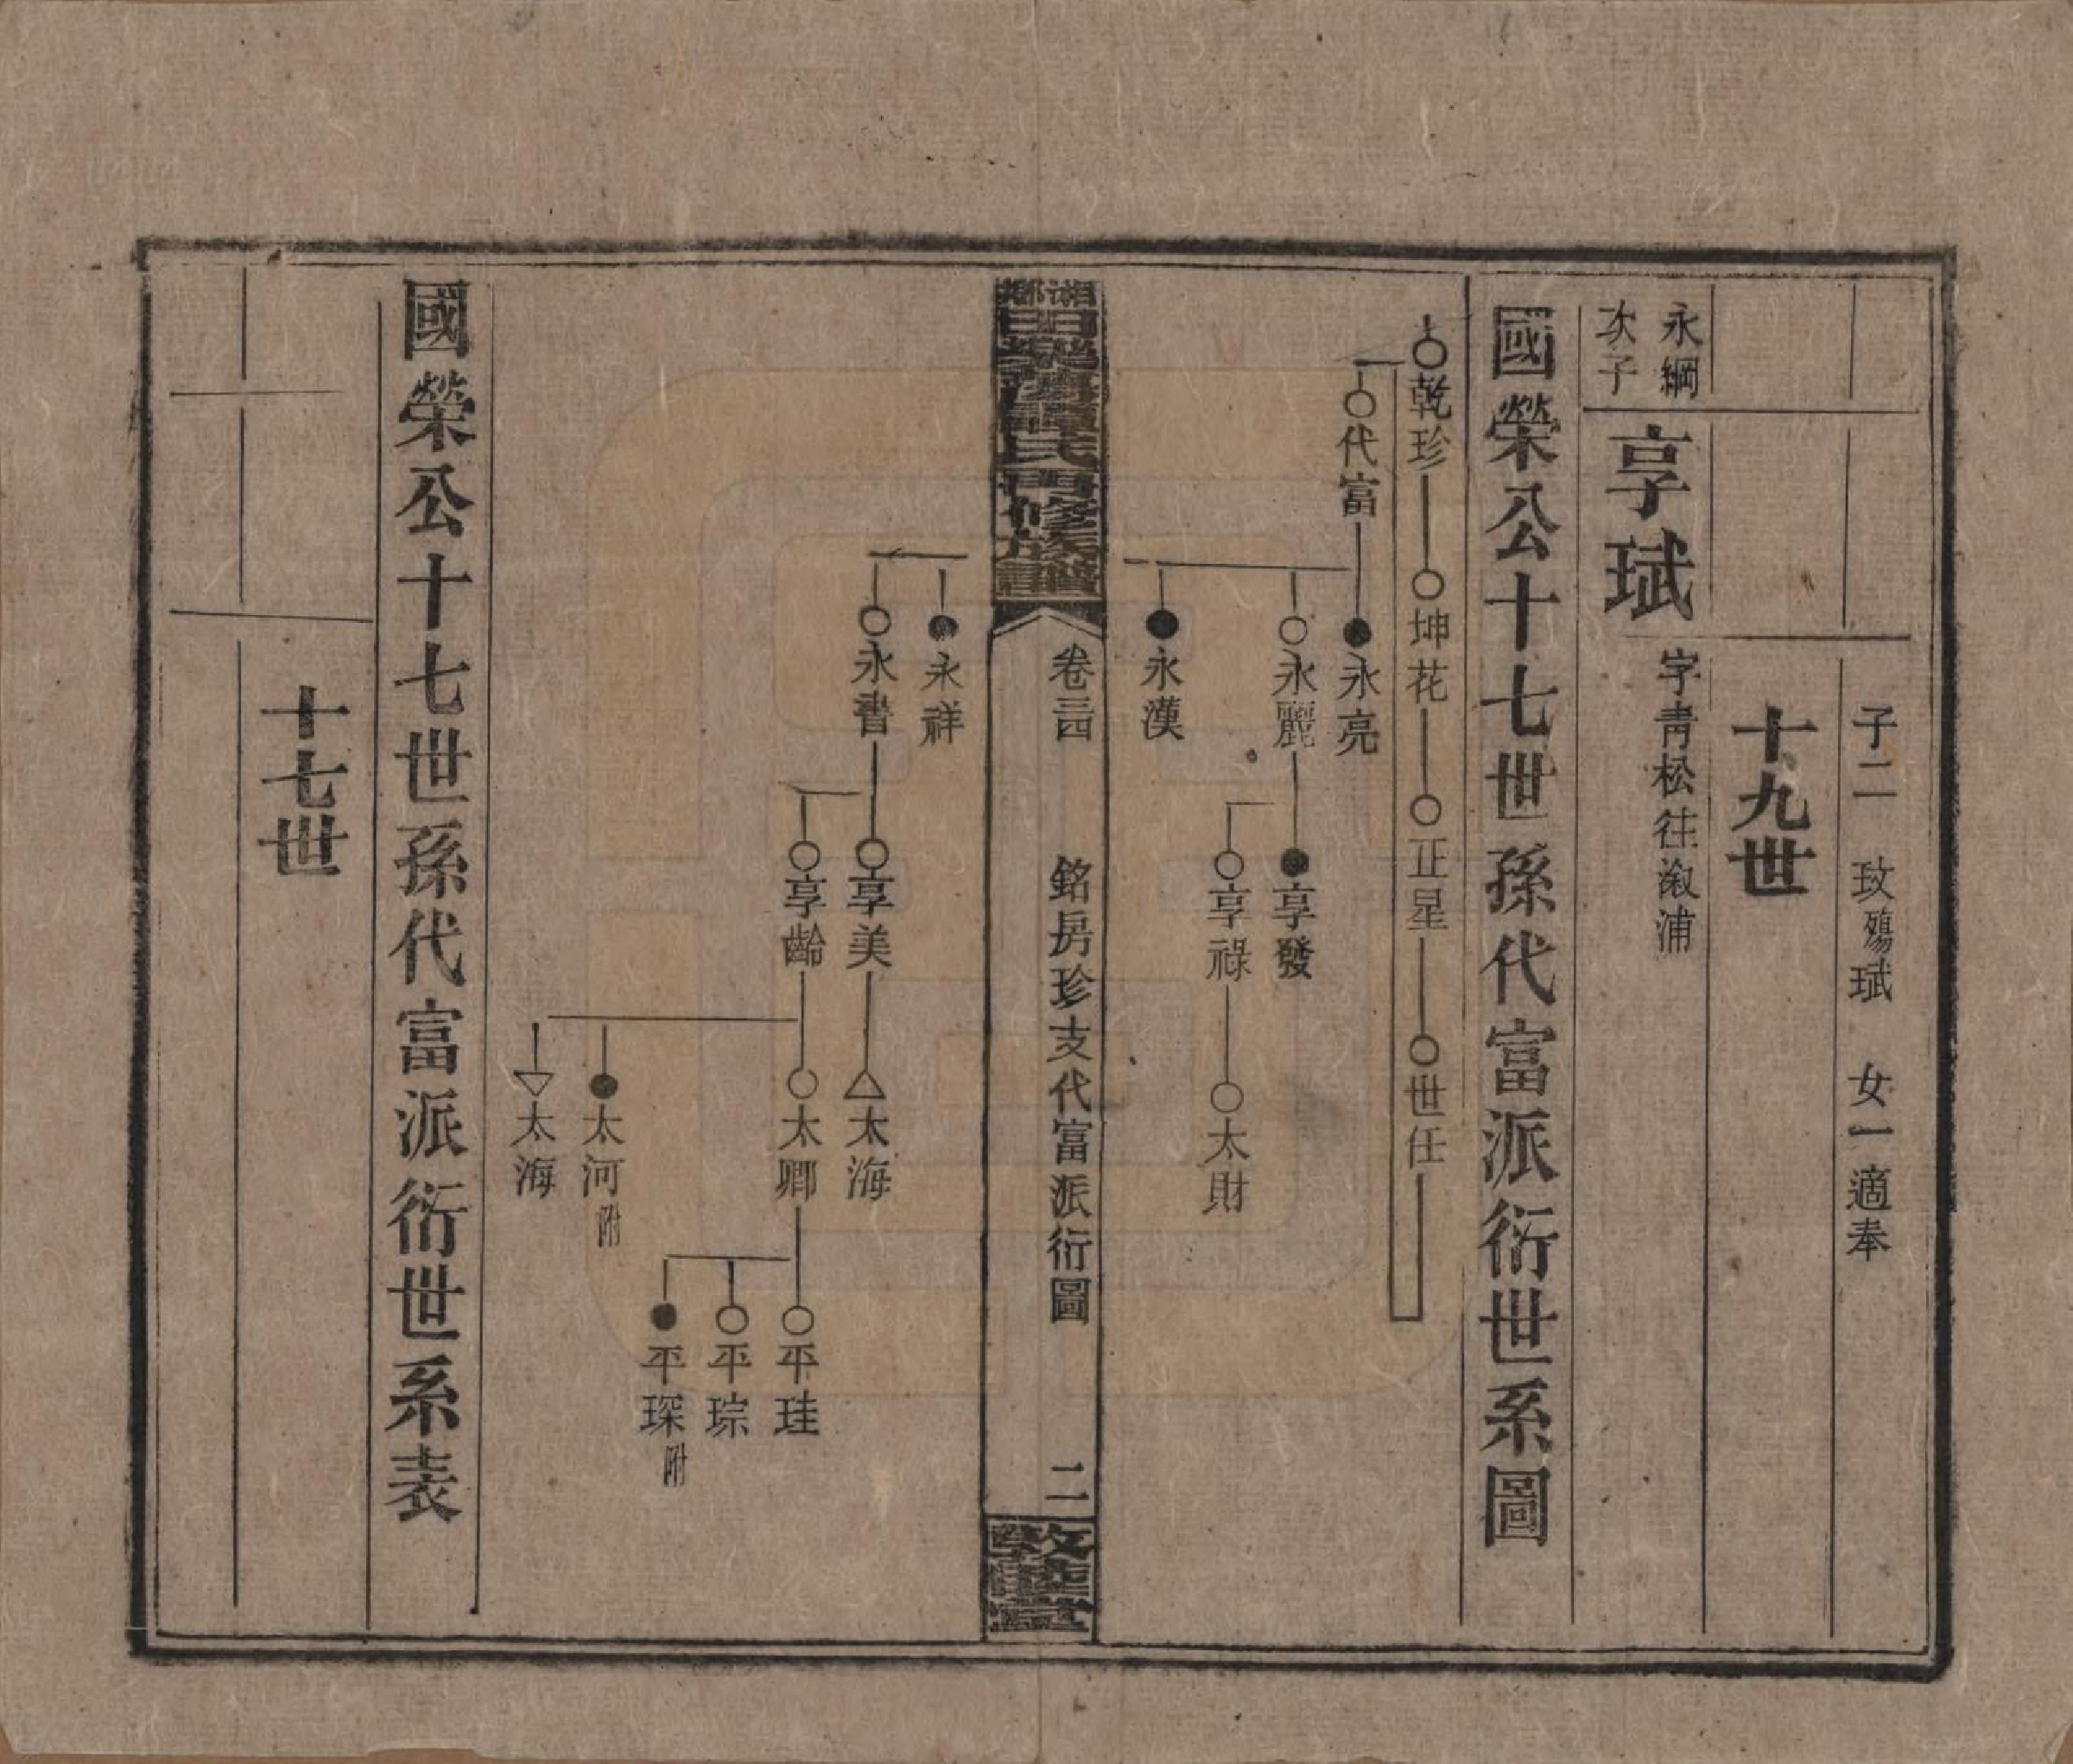 子二 玟殤 珷 女一適奉
十九世
永綱次子
享珷
字青松往溆浦
國榮公十七世孫代富派衍世系圖
乾珍
坤花
正星
世任
代富
永亮
永麗
享發
享祿
太財
永漢
氏四修族譜
卷三四
銘房珍支代富派衍圖
二
敦睦堂
永祥
永書
享美
太海
享齡
太卿
平珪
平琮
平琛附
太河附
太海
國榮公十七世孫代富派衍世系表
十七世